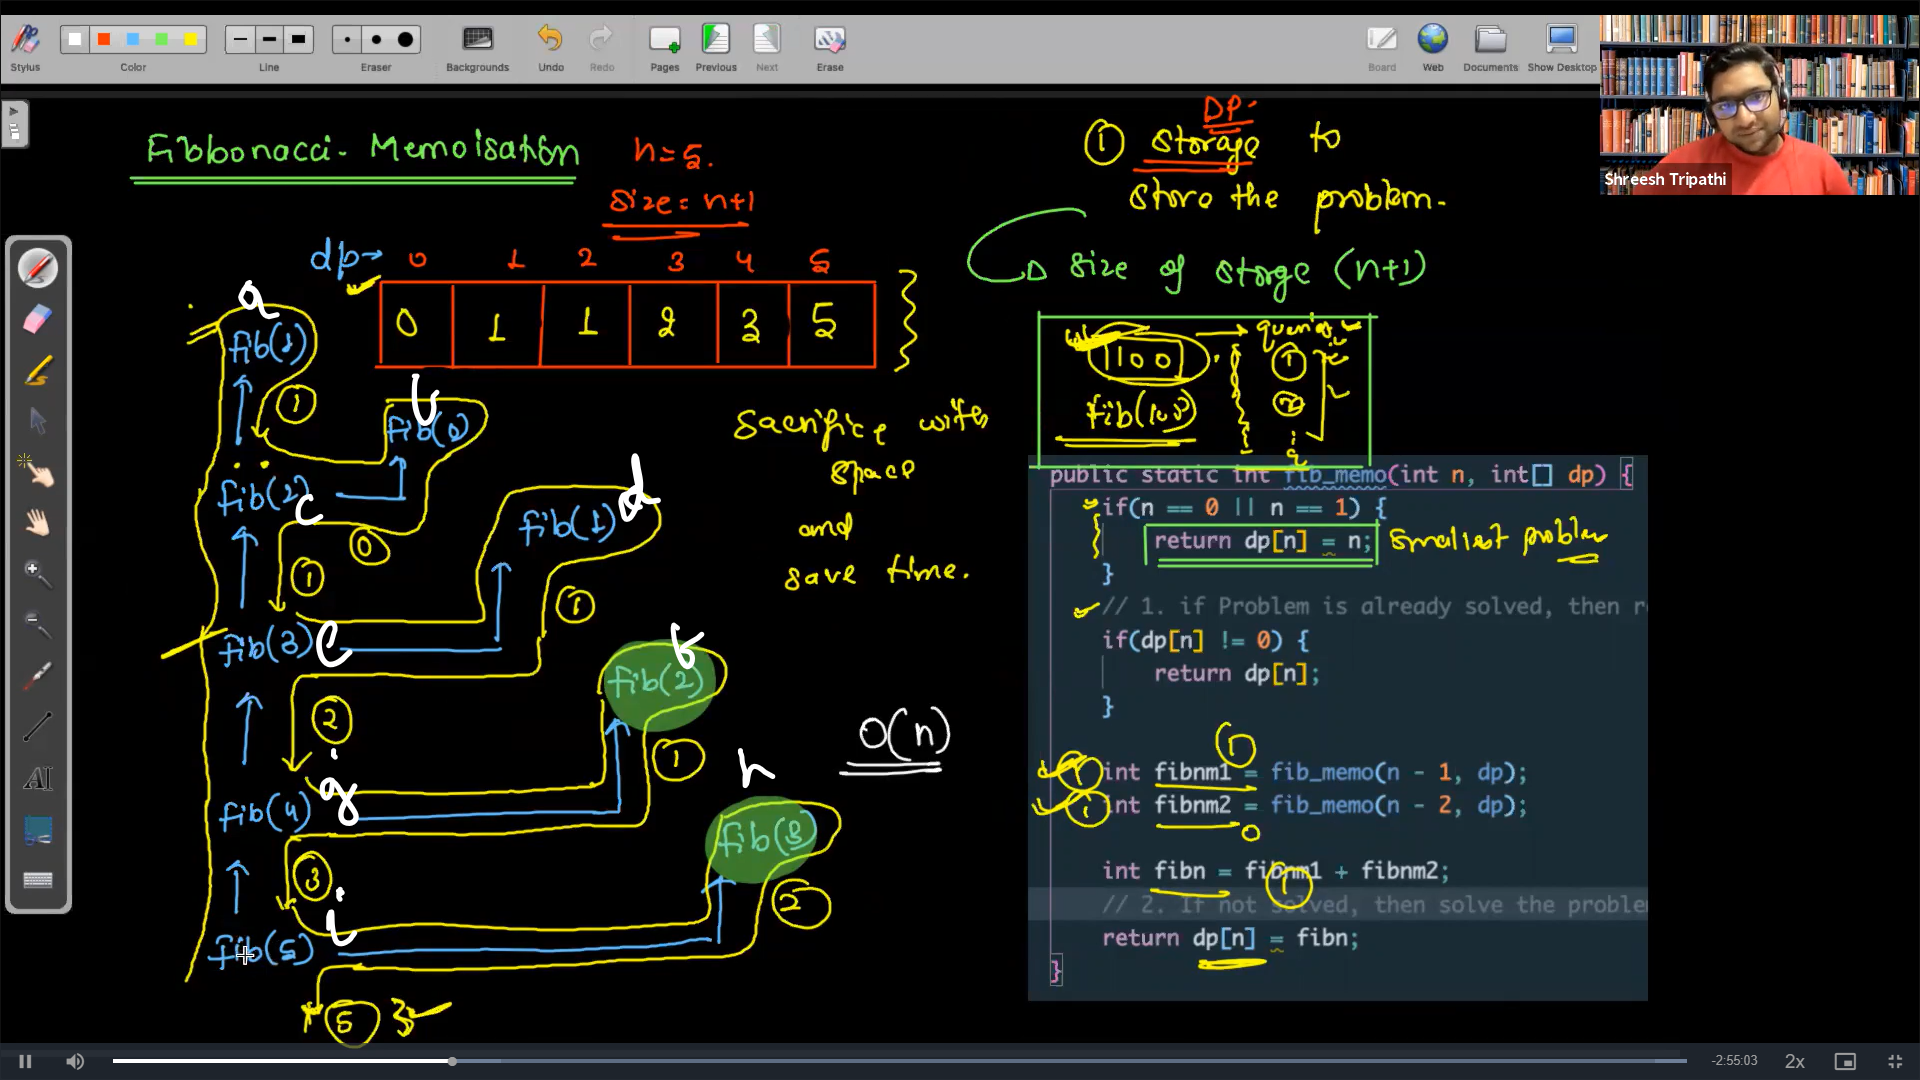 Stylus
Color
Line
Eraser
Backgrounds
Undo
Redo
Pages
Previous
Next
Erase
Board
Web
Documents
Show Desktop
Shreesh Tripathi
Fibbonacci - Memoisation
n=5.
size = n+1
dp→ 0 1 2 3 4 5
0 1 1 2 3 5
DP.
① storage to
store the problem.
size of storge (n+1)
100 → queries
fib(100)
①
②
q
a
fib(1)
①
b
fib(0)
fib(2) c
⓪
①
fib(1) d
①
fib(3) e
②
fib(2) f
①
fib(4) g
③
h
fib(3)
②
fib(5) i
⑤ 3
sacrifice with
space
and
save time.
O(n)
public static int fib_memo(int n, int[] dp) {
if(n == 0 || n == 1) {
return dp[n] = n; smallest problem
}
// 1. if Problem is already solved, then r
if(dp[n] != 0) {
return dp[n];
}
①
① int fibnm1 = fib_memo(n - 1, dp);
① int fibnm2 = fib_memo(n - 2, dp);
0
int fibn = fibnm1 + fibnm2;
①
// 2. If not solved, then solve the proble
return dp[n] = fibn;
}
-2:55:03
2x